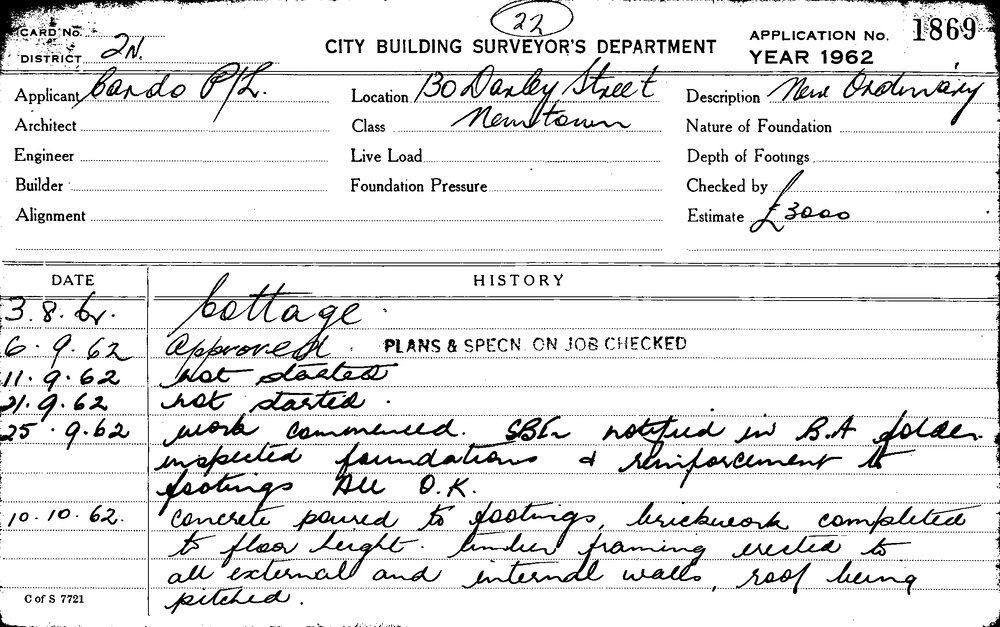 22
CARD No.
DISTRICT 2N.
CITY BUILDING SURVEYOR'S DEPARTMENT
APPLICATION No. 1869
YEAR 1962
Applicant Cando P/L. Location 130 Darley Street Description New Ordinary
Architect Class Newtown Nature of Foundation
Engineer Live Load Depth of Footings
Builder Foundation Pressure Checked by
Alignment Estimate £3000
DATE HISTORY
3.8.62. Cottage.
6.9.62 Approved. PLANS & SPECN. ON JOB CHECKED
11.9.62 not started
21.9.62 not started.
25.9.62 work commenced. notified in B.A folder.
inspected foundations & reinforcement to
footings All O.K.
10.10.62. concrete poured to footings, brickwork completed
to floor height. timber framing erected to
all external and internal walls, roof being
pitched.
C of S 7721